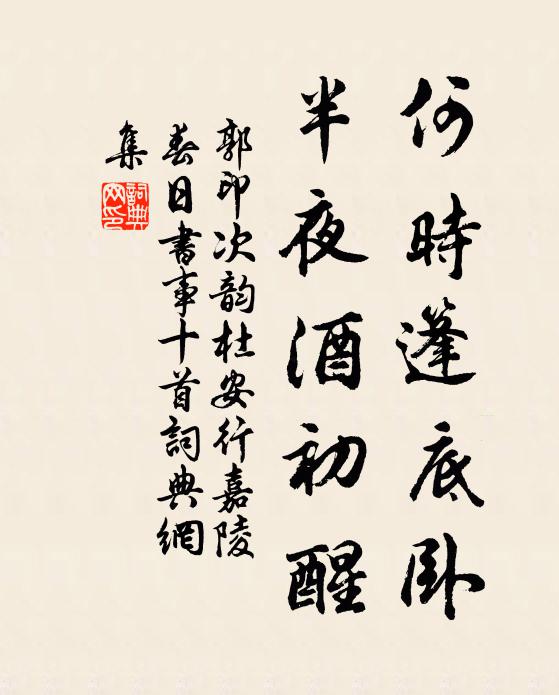 何時篷底卧
半夜酒初醒
郭印次韵杜安行嘉陵
春日書事十首詞典網
集
詞典
网印